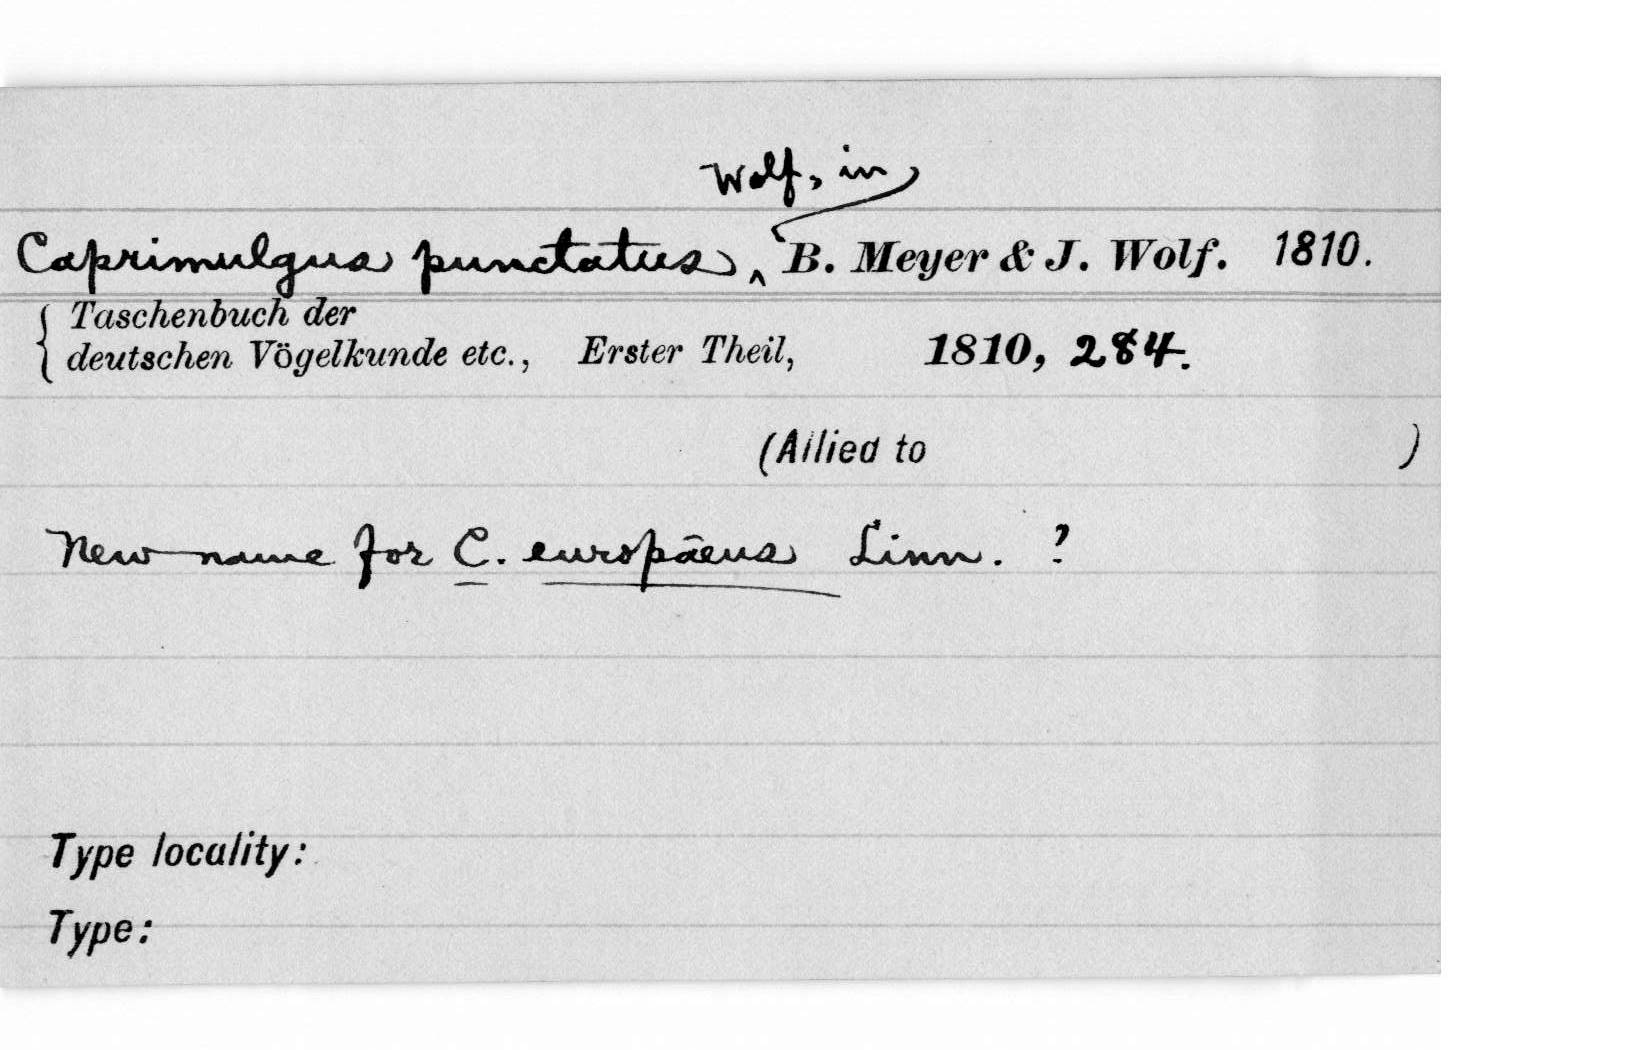 Wolf, in
Caprimulgus punctatus, ^ B. Meyer & J. Wolf. 1810.
{ Taschenbuch der
deutschen Vögelkunde etc., Erster Theil, 1810, 284.
(Allied to )
New name for C. europäeus Linn. ?
Type locality:
Type: